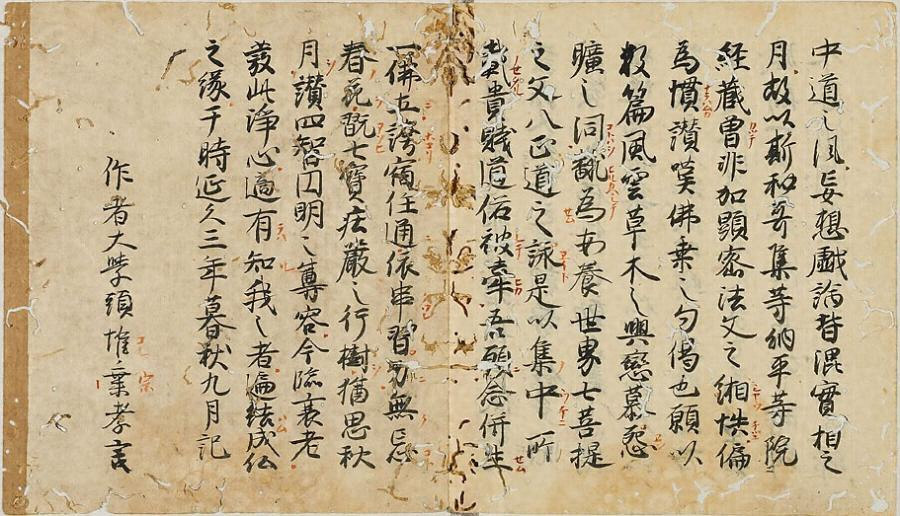 中道之風妄想戯論皆混實相之
月故以斯和哥集等納平等院
経蔵曽非加顕密法文之緗帙偏
為慣讃嘆佛乗之句偈也願以
数篇風雲草木之興戀慕怨
曠之詞翻為安養世界七菩提
之文八正道之詠是以集中所
載貴賤道俗被牽吾願念併生
一佛土誇宿住通依串習勿無忘
春苑翫七寶荘嚴之行樹猶思秋
月讃四智円明之尊容今臨衰老
發此浄心適有知我之者遍結成仏
之縁于時延久三年暮秋九月記
作者大学頭惟宗孝言